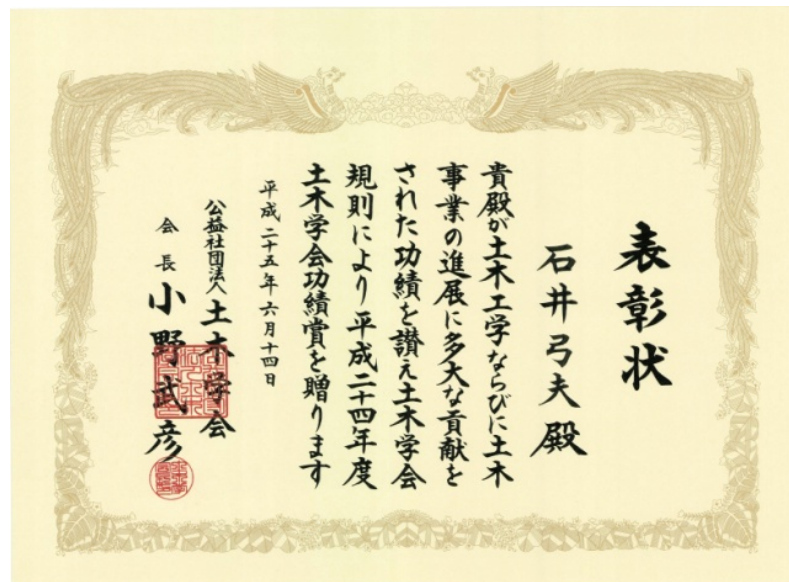 表彰状
石井弓夫殿
貴殿が土木工学ならびに土木
事業の進展に多大な貢献を
された功績を讃え土木学会
規則により平成二十四年度
土木学会功績賞を贈ります
平成二十五年六月十四日
公益社団法人土木学会
会長小野武彦